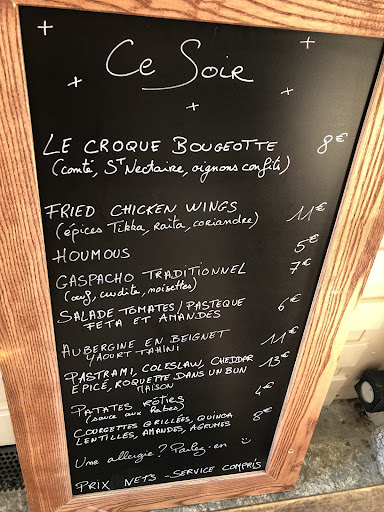 Ce Soir
LE CROQUE BOUGEOTTE 8€
(comté, ST Nectaire, oignons confits)
FRIED CHICKEN WINGS 11€
(épices Tikka, Raïta, coriandre)
HOUMOUS 5€
GASPACHO TRADITIONNEL 7€
(œuf, crudité, noisettes)
SALADE TOMATES/PASTEQUE 6€
FETA ET AMANDES
AUBERGINE EN BEIGNET 11€
YAOURT TAHINI
PASTRAMI, COLESLAW, CHEDDAR 13€
ÉPICÉ, ROQUETTE DANS UN BUN
MAISON
PATATES RÔTIES 4€
(sauce aux herbes)
COURGETTES GRILLÉES, QUINOA 8€
LENTILLES, AMANDES, AGRUMES
Une allergie? Parlez-en
PRIX NETS - SERVICE COMPRIS